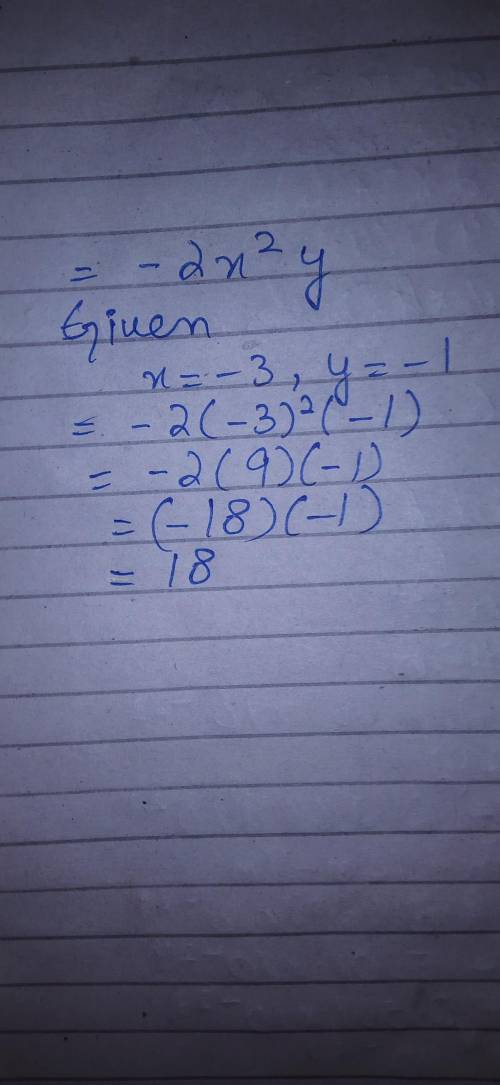 = -2x²y
Given
x = -3, y = -1
= -2(-3)²(-1)
= -2(9)(-1)
= (-18)(-1)
= 18